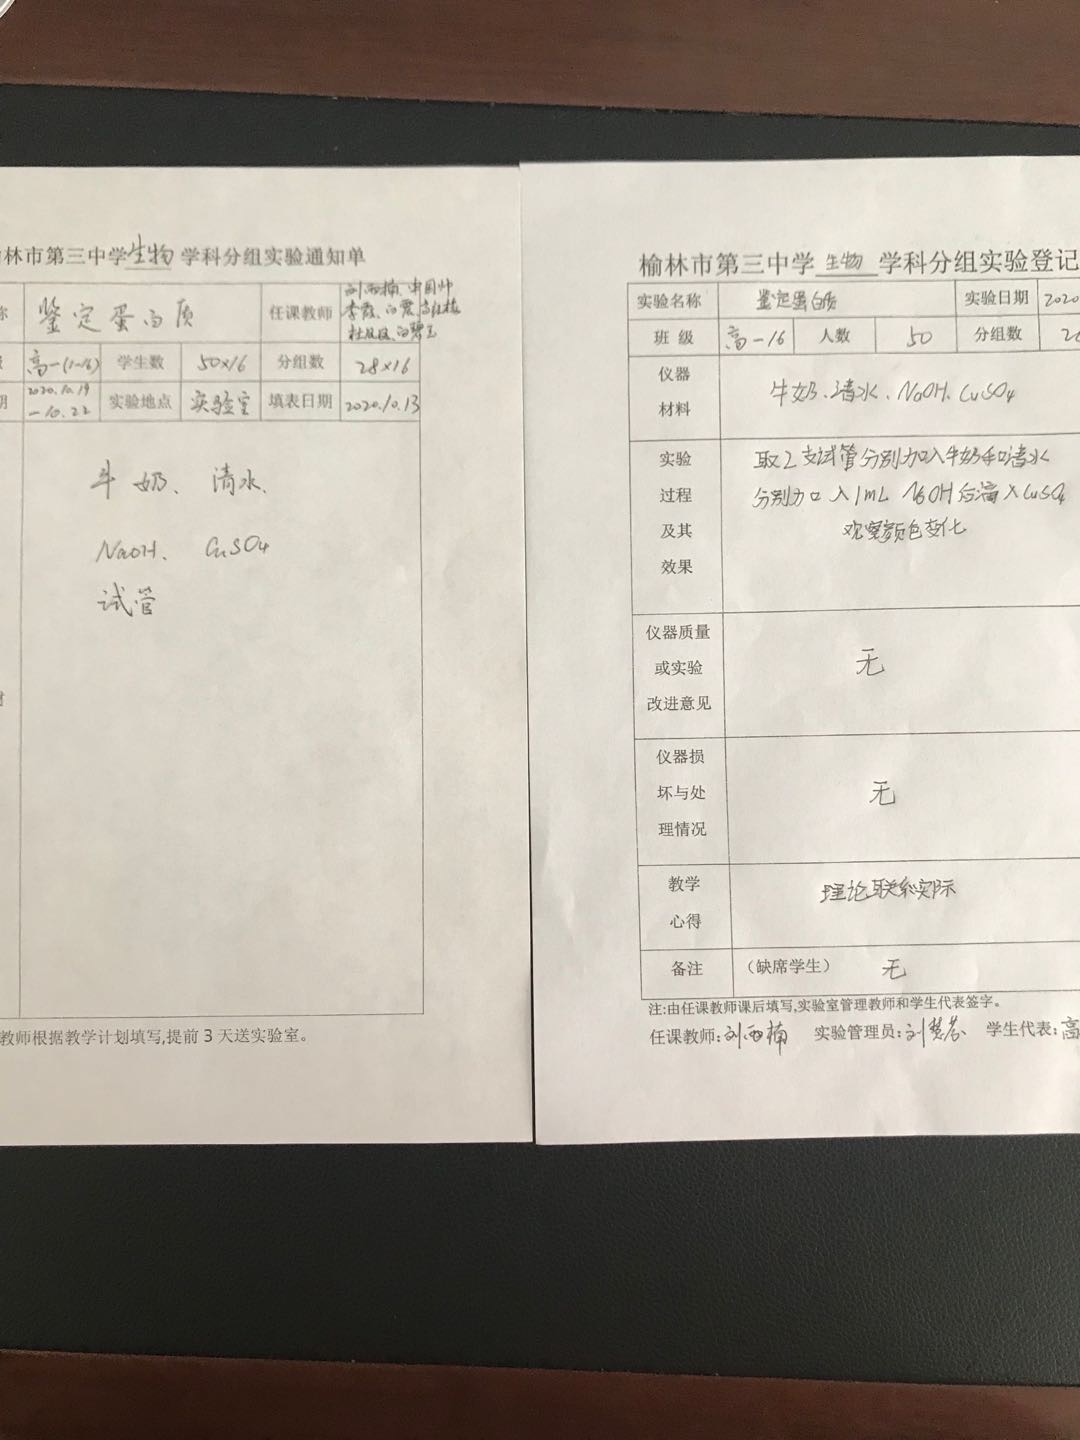 林市第三中学生物学科分组实验通知单
称 鉴定蛋白质 任课教师 刘西楠、申国帅
李霞、白霞、
级 高一(1~16) 学生数 50×16 分组数 28×16
期 2020.10.19
—10.22 实验地点 实验室 填表日期 2020.10.13
牛奶、清水、
NaOH、CuSO4
试管
材
教师根据教学计划填写,提前3天送实验室。
榆林市第三中学生物学科分组实验登记
实验名称 鉴定蛋白质 实验日期 2020
班级 高一16 人数 50 分组数
仪器
材料
牛奶、清水、NaOH、CuSO4
实验
过程
及其
效果
取2支试管分别加入牛奶和清水
分别加入1mL NaOH后滴入CuSO4
观察颜色变化
仪器质量
或实验
改进意见
无
仪器损
坏与处
理情况
无
教学
心得
理论联系实际
备注 (缺席学生) 无
注:由任课教师课后填写,实验室管理教师和学生代表签字。
任课教师:刘西楠 实验管理员:刘慧芬 学生代表:高